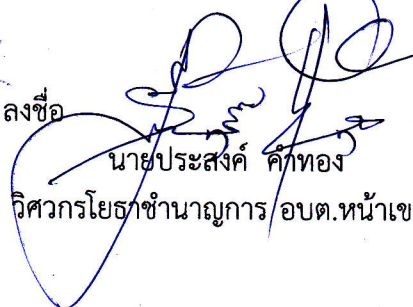 ลงชื่อ
นายประสงค์ คำทอง
วิศวกรโยธาชำนาญการ อบต.หน้าเข